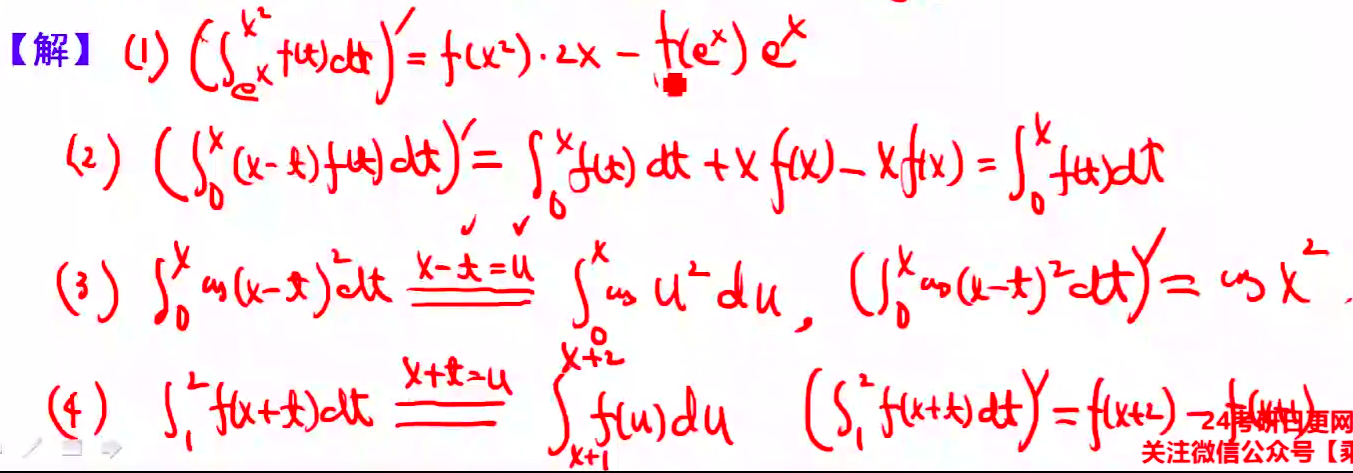 【解】 (1) (∫_{e^x}^{x²} f(t)dt)′ = f(x²)·2x − f(e^x) e^x
(2) (∫_0^x (x-t)f(t)dt)′ = ∫_0^x f(t)dt + x f(x) − x f(x) = ∫_0^x f(t)dt
(3) ∫_0^x cos(x-t)²dt x-t=u ∫_0^x cos u² du, (∫_0^x cos(x-t)²dt)′ = cos x².
(4) ∫_1^2 f(x+t)dt x+t=u ∫_{x+1}^{x+2} f(u)du (∫_1^2 f(x+t)dt)′ = f(x+2) − f(x+1)
24考研日更网
关注微信公众号【乘